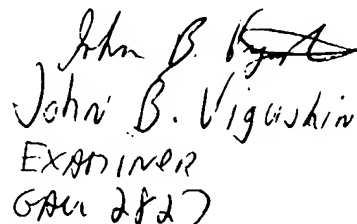 John B. Vigushin
John B. Vigushin
EXAMINER
GAU 2827